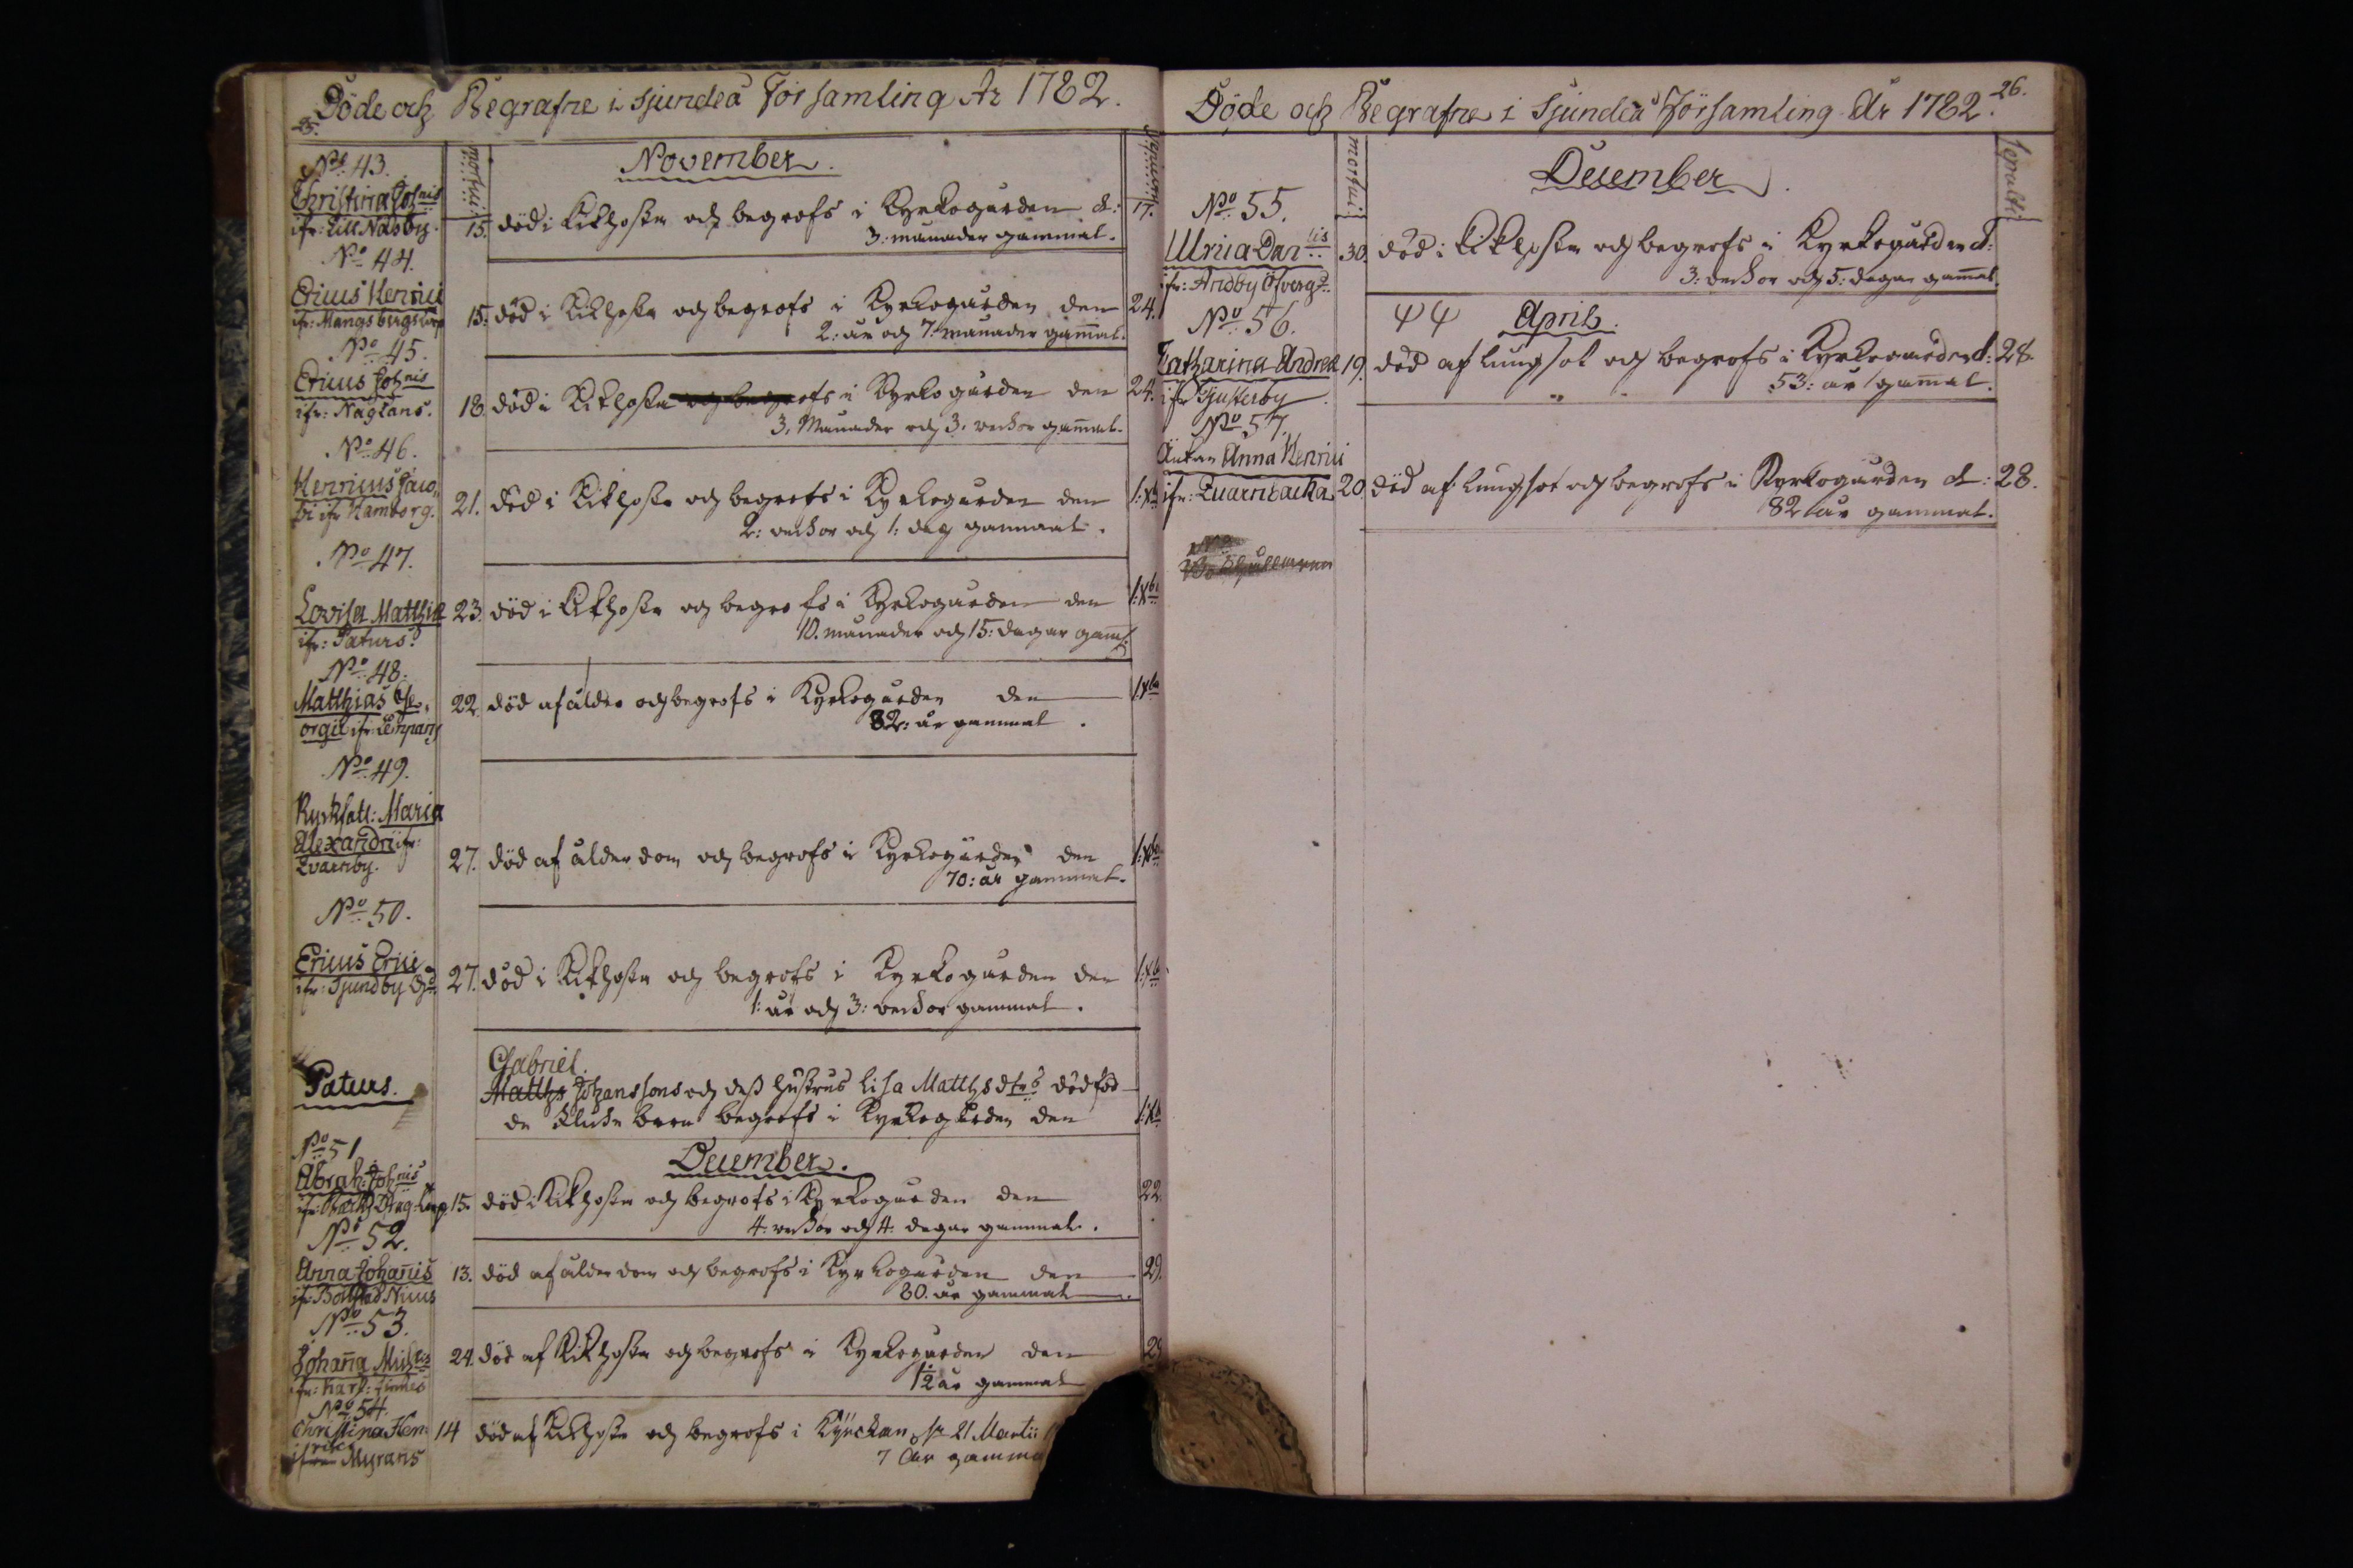 25.
Döde och Begrafne i Sjundeå Församling År 1782.
mortui
November.
No 43.
Christina Johnis
ifr: Lill Näsby.
15. död i Kikhosta och begrofs i Kyrkogården d: 17.
3: månader gammal.
No 44.
Ericus Henrici
ifr: Mangsbergs torp
15. död i Kikhosta och begrofs i Kyrkogården den 24.
2: år och 7: månader gamal.
No 45.
Ericus Johnis
ifr: Näglans.
18. död i Kikhosta och begrofs i Kyrkogården den 24.
3. Månader och 3. veckor gamal.
No 46.
Henricus Jaco,,
bi ifr Kamborg.
21. död i Kikhosta och begrofs i Kyrkogården den 1: Xb
2: veckor och 1: dag gammal.
No 47.
Lovisa Matthiæ
ifr: Paturs.
23. död i Kikhosta och begrofs i Kyrkogården den 1: Xb
10. månader och 15: dagar gam:
No 48.
Matthias Ge,,
orgii ifr:
22. död af ålder och begrofs i Kyrkogården den 1: Xb
82: år gammal.
No 49.
Maria
Alexandri ifr:
Qvarnby.
27. död af ålderdom och begrofs i Kyrkogården den 1: Xb
70: år gammal.
No 50.
Ericus Erici
ifr: Sjundby Gd
27. död i Kikhosta och begrofs i Kyrkogården den 1: Xb
1: år och 3: veckor gammal.
Paturs.
Gabriel
Matths Johanssons och dess hustrus Lisa Matthsdtrs dödföd
de barn begrofs i Kyrkogården den 1: Xb
December.
No 51
Abrah: Johnis
15. död i Kikhosta och begrofs i Kyrkogården den 22.
4. veckor och 4. dagar gammal.
No 52.
Anna Johanis
ifr: Bollstad Nuus
13. död af ålderdom och begrofs i Kyrkogården den 29.
80. år gammal.
No 53.
Johana Michlis
ifr:
24. död af Kikhosta och begrofs i Kyrkogården den 29
1/2 år gammal
No 54.
Christina Hen
rici
ifrån Myrans
14 död af Kikhosta och begrofs i Kyrckan 21 Martii
7 År gamma
26.
Döde och Begrafne i Sjundeå Församling År 1782.
mortui
sepulti
December.
No 55.
Ulrica Danlis
ifr: Andby Öfverg:
30. död i Kikhosta och begrofs i Kyrkogården d:
3: veckor och 5: dagar gamal.
April.
No 56.
Catharina Andreæ
ifr Sjusterby
19. död af lungsot och begrofs i Kyrkogården d: 28.
53: år gamal.
No 57.
Änkan Anna Henrici
ifr: Qvarnbacka
20. död af lungsot och begrofs i Kyrkogården d: 28.
82 år gammal.